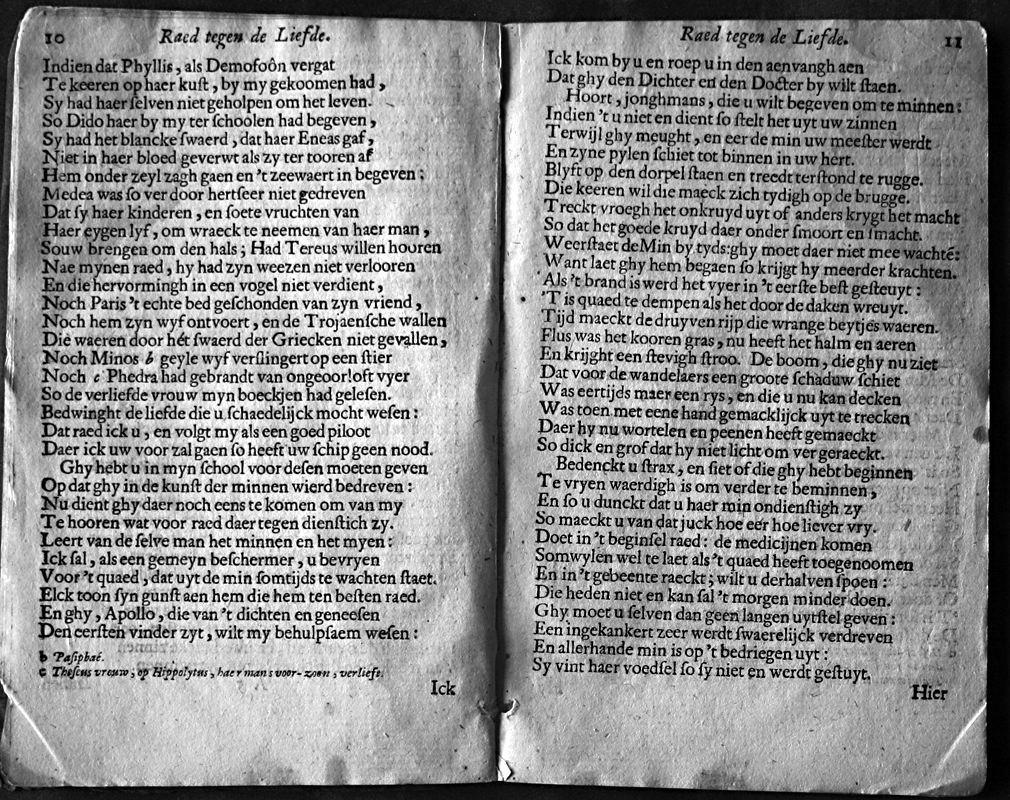 10 Raed tegen de Liefde.
Indien dat Phyllis, als Demofoôn vergat
Te keeren op haer kuſt, by my gekoomen had,
Sy had haer ſelven niet geholpen om het leven.
So Dido haer by my ter ſchoolen had begeven,
Sy had het blancke ſwaerd, dat haer Eneas gaf,
Niet in haer bloed geverwt als zy ter tooren af
Hem onder zeyl zagh gaen en 't zeewaert in begeven:
Medea was ſo ver door hertſeer niet gedreven
Dat ſy haer kinderen, en ſoete vruchten van
Haer eygen lyf, om wraeck te neemen van haer man,
Souw brengen om den hals; Had Tereus willen hooren
Nae mynen raed, hy had zyn weezen niet verlooren
En die hervormingh in een vogel niet verdient,
Noch Paris 't echte bed geſchonden van zyn vriend,
Noch hem zyn wyf ontvoert, en de Trojaenſche wallen
Die waeren door hét ſwaerd der Griecken niet gevallen,
Noch Minos b geyle wyf verſlingert op een ſtier
Noch c Phedra had gebrandt van ongeoorloft vyer
So de verliefde vrouw myn boeckjen had geleſen.
Bedwinght de liefde die u ſchaedelijck mocht weſen:
Dat raed ick u, en volgt my als een goed piloot
Daer ick uw voor zal gaen ſo heeft uw ſchip geen nood.
Ghy hebt u in myn ſchool voor deſen moeten geven
Op dat ghy in de kunſt der minnen wierd bedreven:
Nu dient ghy daer noch eens te komen om van my
Te hooren wat voor raed daer tegen dienſtich zy.
Leert van de ſelve man het minnen en het myen:
Ick ſal, als een gemeyn beſchermer, u bevryen
Voor 't quaed, dat uyt de min ſomtijds te wachten ſtaet.
Elck toon ſyn gunſt aen hem die hem ten beſten raed.
En ghy, Apollo, die van 't dichten en geneeſen
Den eerſten vinder zyt, wilt my behulpſaem weſen:
b Paſiphaé.
c Theſeus vrouw, op Hippolytus, haer mans voor-zoon, verlieft.
Ick
Raed tegen de Liefde. 11
Ick kom by u en roep u in den aenvangh aen
Dat ghy den Dichter en den Docter by wilt ſtaen.
Hoort, jonghmans, die u wilt begeven om te minnen:
Indien 't u niet en dient ſo ſtelt het uyt uw zinnen
Terwijl ghy meught, en eer de min uw meeſter werdt
En zyne pylen ſchiet tot binnen in uw hert.
Blyft op den dorpel ſtaen en treedt terſtond te rugge.
Die keeren wil die maeck zich tydigh op de brugge.
Treckt vroegh het onkruyd uyt of anders krygt het macht
So dat het goede kruyd daer onder ſmoort en ſmacht.
Weerſtaet de Min by tyds: ghy moet daer niet mee wachtē:
Want laet ghy hem begaen ſo krijgt hy meerder krachten.
Als 't brand is werd het vyer in 't eerſte beſt geſteuyt:
'T is quaed te dempen als het door de daken vreuyt.
Tijd maeckt de druyven rijp die wrange beytjes waeren.
Flus was het kooren gras, nu heeft het halm en aeren
En krijght een ſtevigh ſtroo. De boom, die ghy nu ziet
Dat voor de wandelaers een groote ſchaduw ſchiet
Was eertijds maer een rys, en die u nu kan decken
Was toen met eene hand gemacklijck uyt te trecken
Daer hy nu wortelen en peenen heeft gemaeckt
So dick en grof dat hy niet licht om ver geraeckt.
Bedenckt u ſtrax, en ſiet of die ghy hebt beginnen
Te vryen waerdigh is om verder te beminnen,
En ſo u dunckt dat u haer min ondienſtigh zy
So maeckt u van dat juck hoe eer hoe liever vry.
Doet in 't beginſel raed: de medicijnen komen
Somwylen wel te laet als 't quaed heeft toegenoomen
En in 't gebeente raeckt; wilt u derhalven ſpoen:
Die heden niet en kan ſal 't morgen minder doen.
Ghy moet u ſelven dan geen langen uytſtel geven:
Een ingekankert zeer werdt ſwaerelijck verdreven
En allerhande min is op 't bedriegen uyt:
Sy vint haer voedſel ſo ſy niet en werdt geſtuyt.
Hier